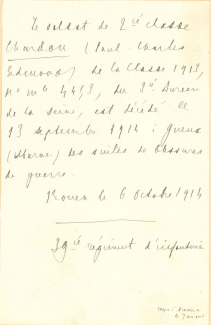 Le soldat de 2e classe
Chardon (Paul Charles
Edmond) de la classe 1913,
n° mle 4453, du 3e Bureau
de la Seine, est décédé le
13 septembre 1914 à Gueux
(Marne) des suites de blessures
de guerre.
Rouen le 6 Octobre 1914
39e régiment d'infanterie